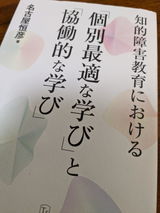 知的障害教育における
「個別最適な学び」と
「協働的な学び」
名古屋恒彦